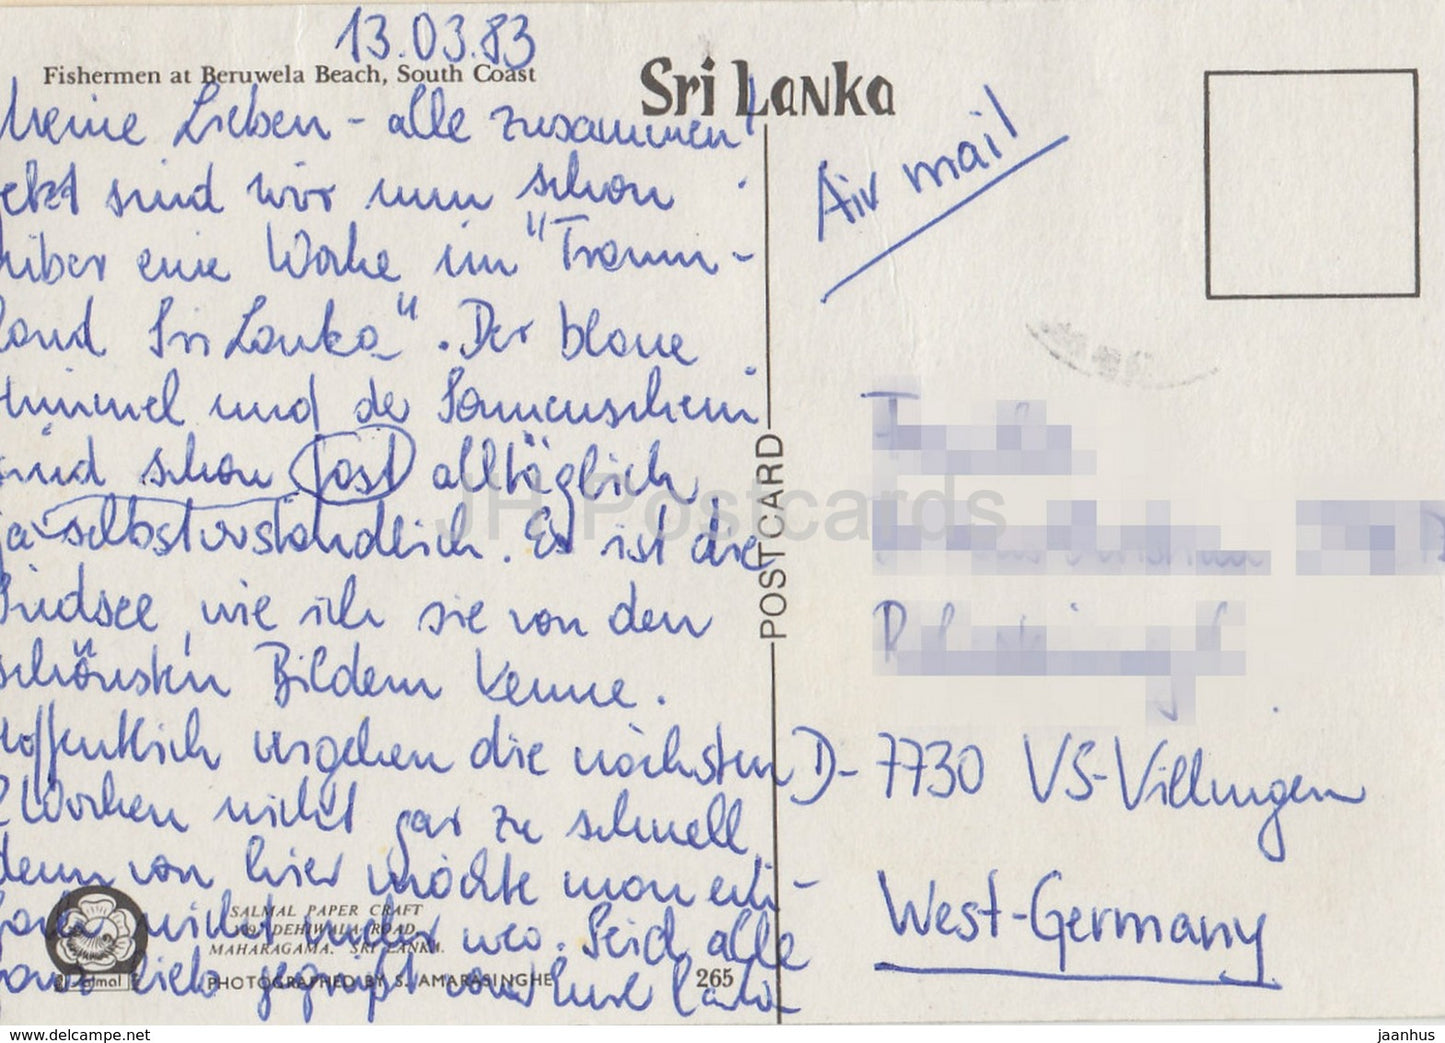 13.03.83
Fishermen at Beruwela Beach, South Coast
Meine Lieben - alle zusammen!
etzt sind wir nun schon
über eine Woche im "Traum-
land Sri Lanka". Der blaue
Himmel und der Sonnenschein
sind schon fast alltäglich,
ja selbstverständlich. Es ist die
Südsee, wie ich sie von den
schönsten Bildern kenne.
Hoffentlich vergehen die nächsten
2 Wochen nicht gar zu schnell,
denn von hier möchte man ein-
fach nicht mehr weg. Seid alle
ganz lieb gegrüßt von
SALMAL PAPER CRAFT
DEHIWALA ROAD,
MAHARAGAMA. SRI LANKA.
Salmal
PHOTOGRAPHED BY S. AMARASINGHE
265
Sri Lanka
POSTCARD
Air mail
D-7730 VS-Villingen
West-Germany
JH Postcards
www.delcampe.net
jaanhus